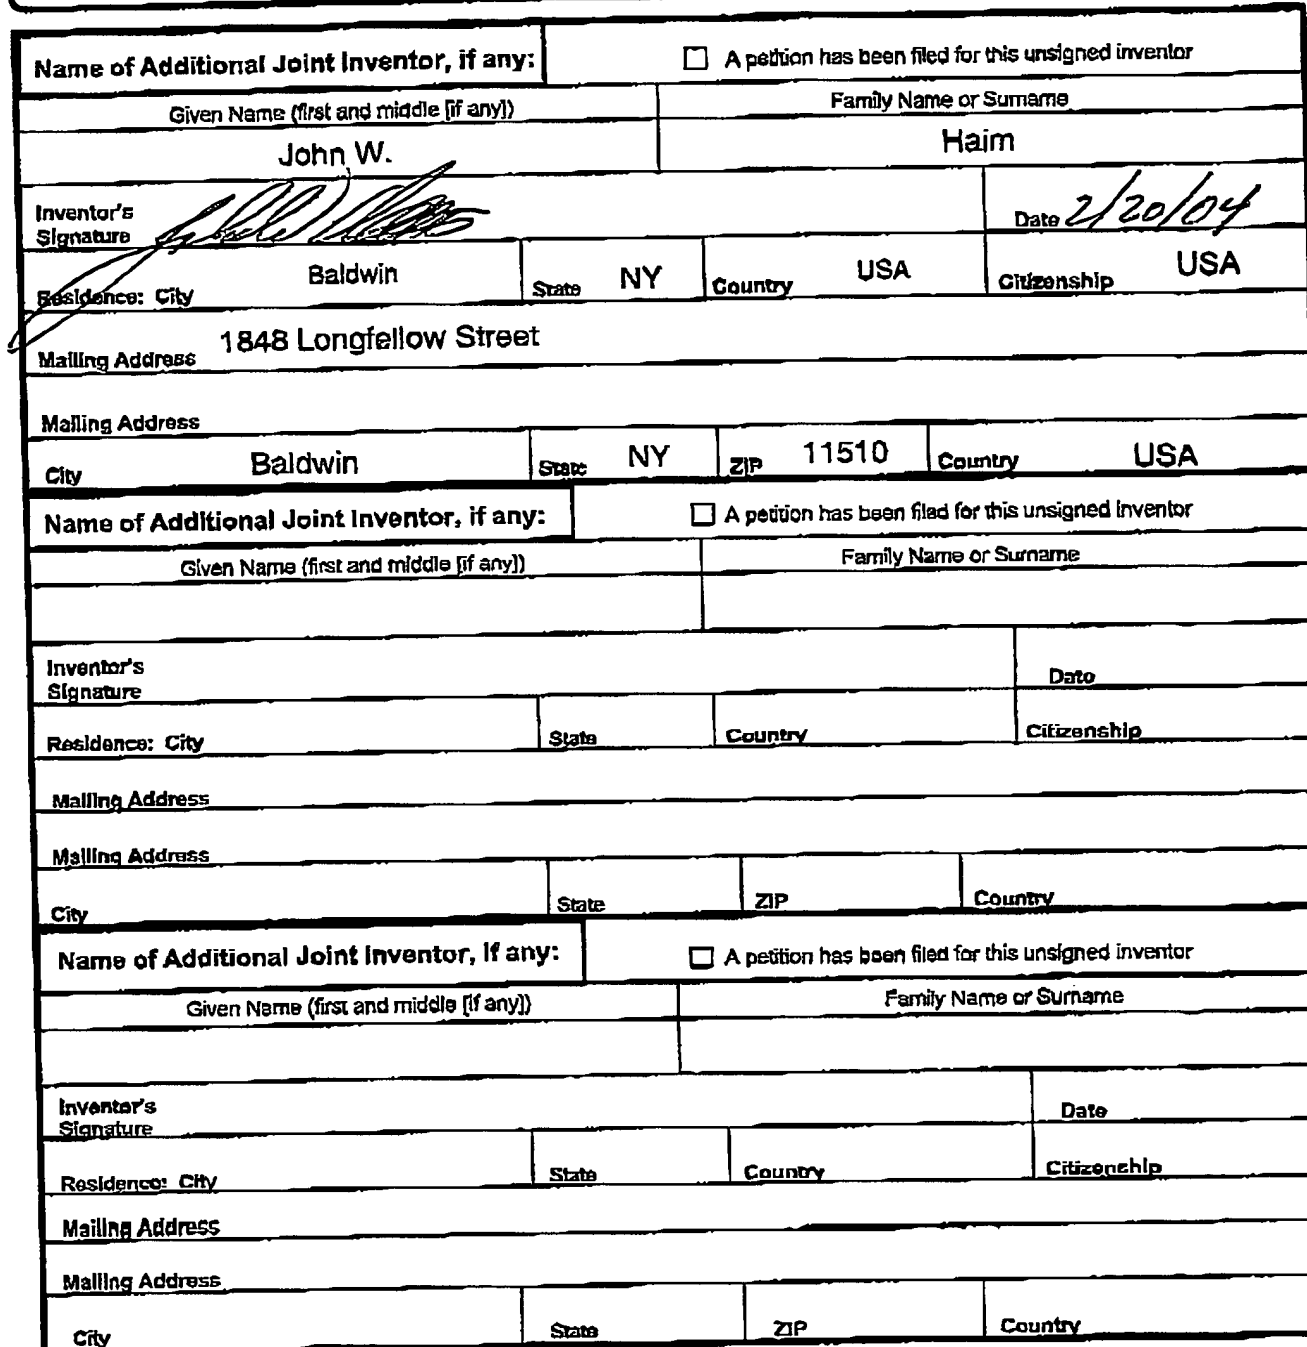 Name of Additional Joint Inventor, if any: A petition has been filed for this unsigned inventor
Given Name (first and middle [if any]) Family Name or Surname
John W. Haim
Inventor's
Signature Date 2/20/04
Residence: City Baldwin State NY Country USA Citizenship USA
Mailing Address 1848 Longfellow Street
Mailing Address
City Baldwin State NY ZIP 11510 Country USA
Name of Additional Joint Inventor, if any: A petition has been filed for this unsigned inventor
Given Name (first and middle [if any]) Family Name or Surname
Inventor's
Signature Date
Residence: City State Country Citizenship
Mailing Address
Mailing Address
City State ZIP Country
Name of Additional Joint Inventor, if any: A petition has been filed for this unsigned inventor
Given Name (first and middle [if any]) Family Name or Surname
Inventor's
Signature Date
Residence: City State Country Citizenship
Mailing Address
Mailing Address
City State ZIP Country